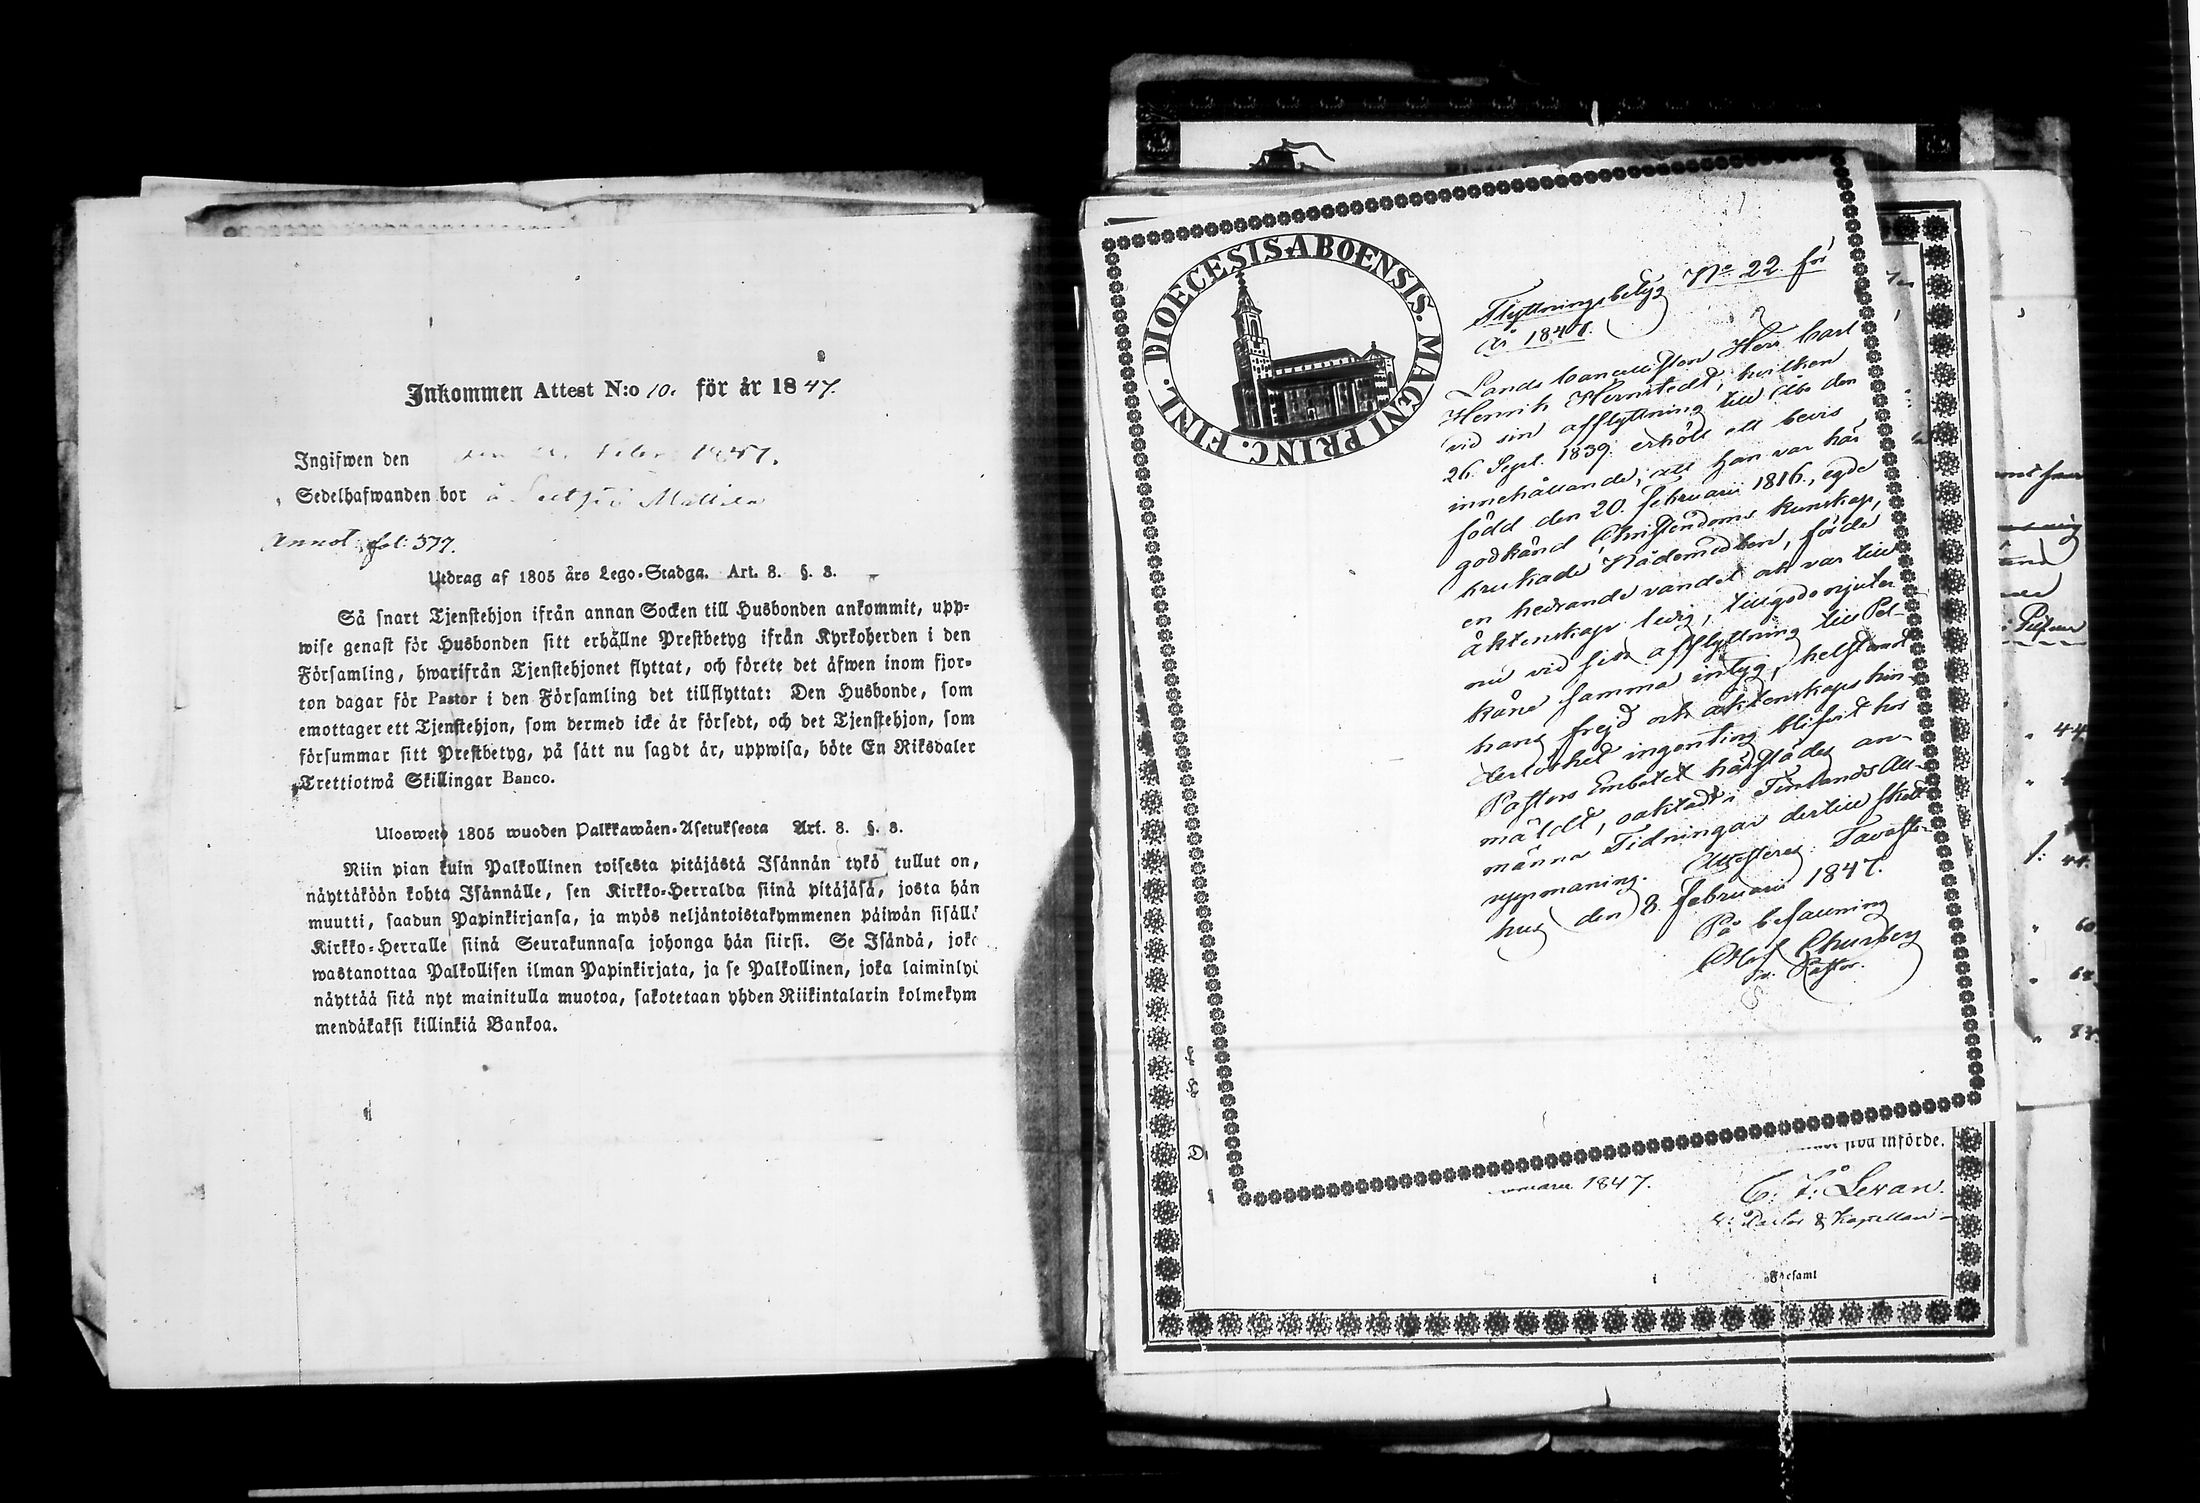 Inkommen Attest N:o 10. för år 1847.
Ingifwen den 1847.
Sedelhafwanden bor å Mattila
Annot. fol: 377.
Utdrag af 1805 års Lego-Stadga. Art. 8. §. 8.
Så snart Tjenstehjon ifrån annan Socken till Husbonden ankommit, upp-
wise genast för Husbonden sitt erhållne Prestbetyg ifrån Kyrkoherden i den
Församling, hwarifrån Tjenstehjonet flyttat, och förete det äfwen inom fjor-
ton dagar för Pastor i den Församling det tillflyttat: Den Husbonde, som
emottager ett Tjenstehjon, som dermed icke är försedt, och det Tjenstehjon, som
försummar sitt Prestbetyg, på sätt nu sagdt är, uppwisa, böte En Riksdaler
Trettiotwå Skillingar Banco.
Uloswetö 1805 wuoden Palkkawäen-Asetuksesta Art. 8. §. 8.
Niin pian kuin Palkollinen toisesta pitäjästä Isännän tykö tullut on,
näyttäköön kohta Isännälle, sen Kirkko-Herralda siinä pitäjäsä, josta hän
muutti, saadun Papinkirjansa, ja myös neljäntoistakymmenen päiwän sisällä
Kirkko-Herralle siinä Seurakunnasa johonga hän siirsi. Se Isändä, joka
wastanottaa Palkollisen ilman Papinkirjata, ja se Palkollinen, joka laiminlyö
näyttää sitä nyt mainitulla muotoa, sakotetaan yhden Riikintalarin kolmekym
mendäkaksi killinkiä Bankoa.
DIOECESIS ABOENSIS. MAGNI PRINC. FINL.
Flyttningsbetyg No 22 för
År 1847.
Lands Cancellisten Herr Carl
Henrik Hernstedt, hvilken
vid sin afflyttning till Åbo den
26 Sept. 1839 erhöll ett bevis
innehållande, att han var här
född den 20. februarii 1816., egde
godkänd Christendoms kunskap,
brukade Nådemedlen, förde
en hedrande vandel och var till
äktenskap ledig, tillgodonjuter
nu vid sin afflyttning till Pel-
käne samma intyg, helst mot
hans frejd och äktenskaps hin-
derlöshet ingenting blifvit hos
Pastors Embetet härstädes an-
mäldt, oaktadt i Finlands All-
männa Tidningar dertill skett
uppmaning. Attesteras Tavaste-
hus den 8 februarii 1847.
På befallning
Olof Churberg
v. Pastor.
införde.
1847.
C: J: Levan.
v: Pastor & Kapellan